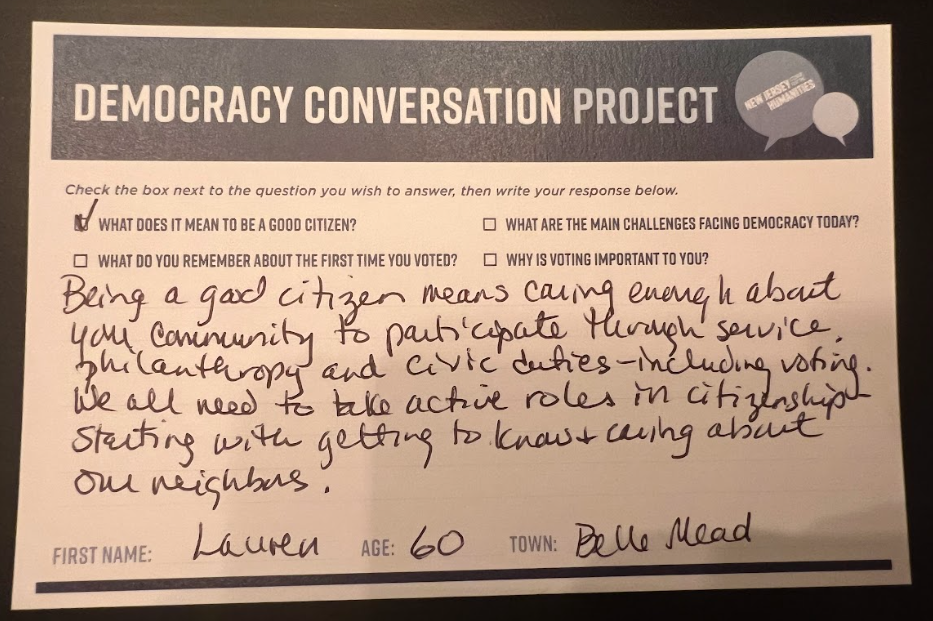 DEMOCRACY CONVERSATION PROJECT
NEW JERSEY HUMANITIES
Check the box next to the question you wish to answer, then write your response below.
WHAT DOES IT MEAN TO BE A GOOD CITIZEN?
WHAT ARE THE MAIN CHALLENGES FACING DEMOCRACY TODAY?
WHAT DO YOU REMEMBER ABOUT THE FIRST TIME YOU VOTED?
WHY IS VOTING IMPORTANT TO YOU?
Being a good citizen means caring enough about
your community to participate through service,
philanthropy and civic duties - including voting.
We all need to take active roles in citizenship -
starting with getting to know + caring about
our neighbors.
FIRST NAME: Lauren AGE: 60 TOWN: Belle Mead